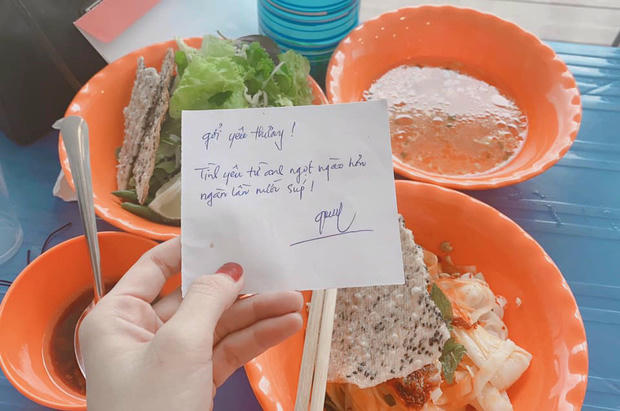 gởi yêu thương!
Tình yêu từ anh ngọt ngào hơn
ngàn lần nước súp!